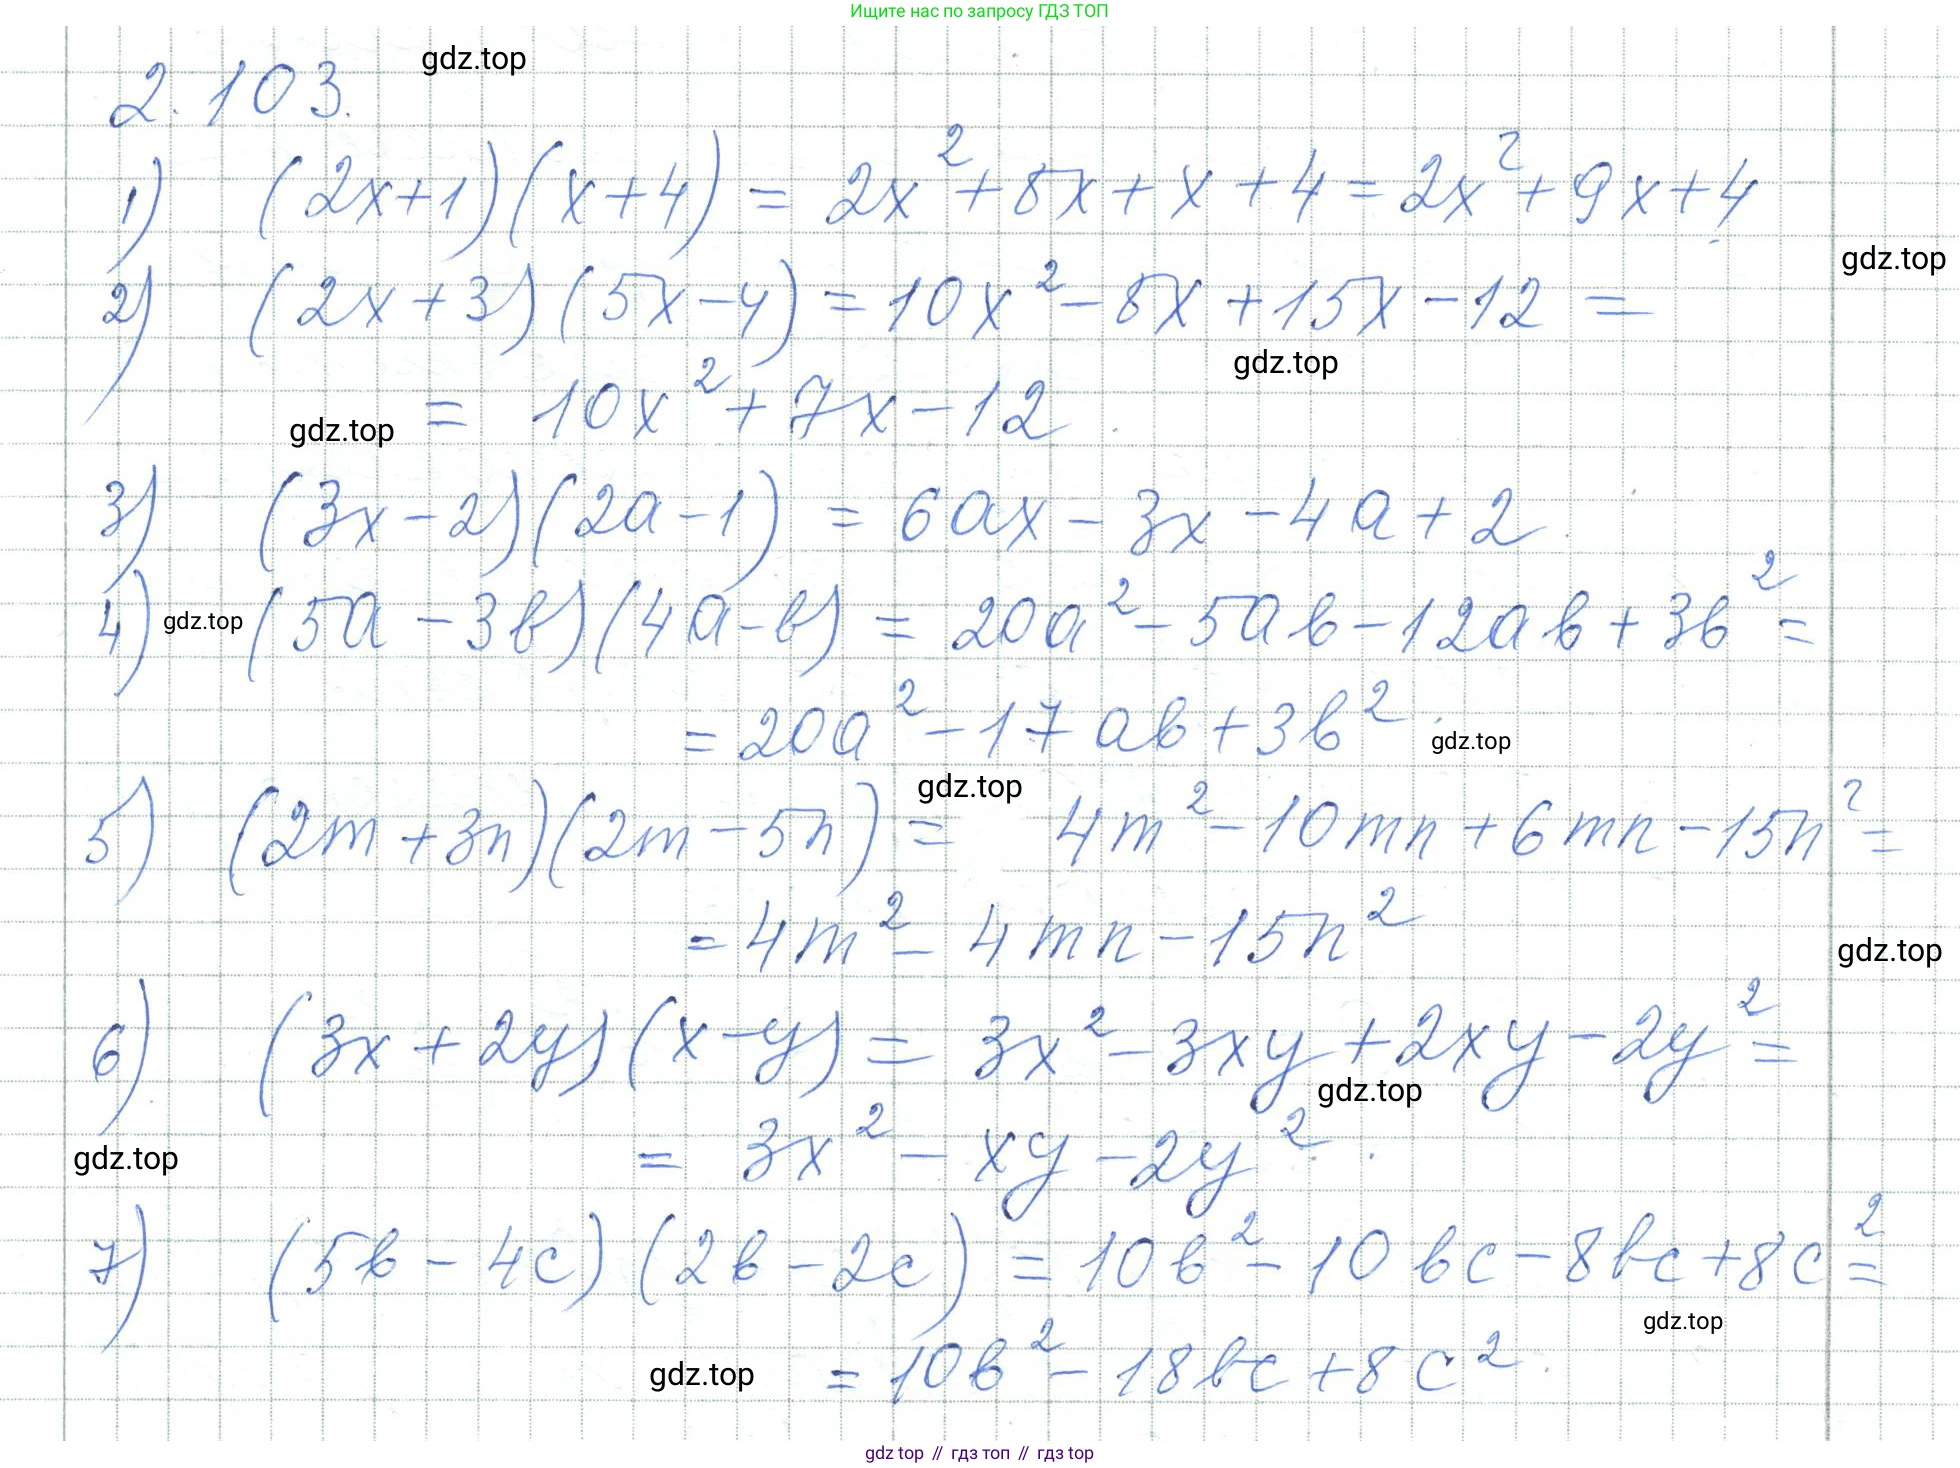 Ищите нас по запросу ГДЗ ТОП
gdz.top
2.103.
1) (2x+1)(x+4) = 2x²+8x+x+4=2x²+9x+4
gdz.top
2) (2x+3)(5x-4) = 10x²-8x+15x-12 =
gdz.top
= 10x²+7x-12
gdz.top
3) (3x-2)(2a-1) = 6ax-3x-4a+2
4) gdz.top (5a-3b)(4a-b) = 20a²-5ab-12ab+3b²=
= 20a²-17ab+3b²
gdz.top
gdz.top
5) (2m+3n)(2m-5n) = 4m²-10mn+6mn-15n²=
= 4m²-4mn-15n²
gdz.top
6) (3x+2y)(x-y) = 3x²-3xy+2xy-2y²=
gdz.top
= 3x²-xy-2y²
gdz.top
7) (5b-4c)(2b-2c) = 10b²-10bc-8bc+8c²=
gdz.top
gdz.top = 10b²-18bc+8c².
gdz top // гдз топ // гдз top